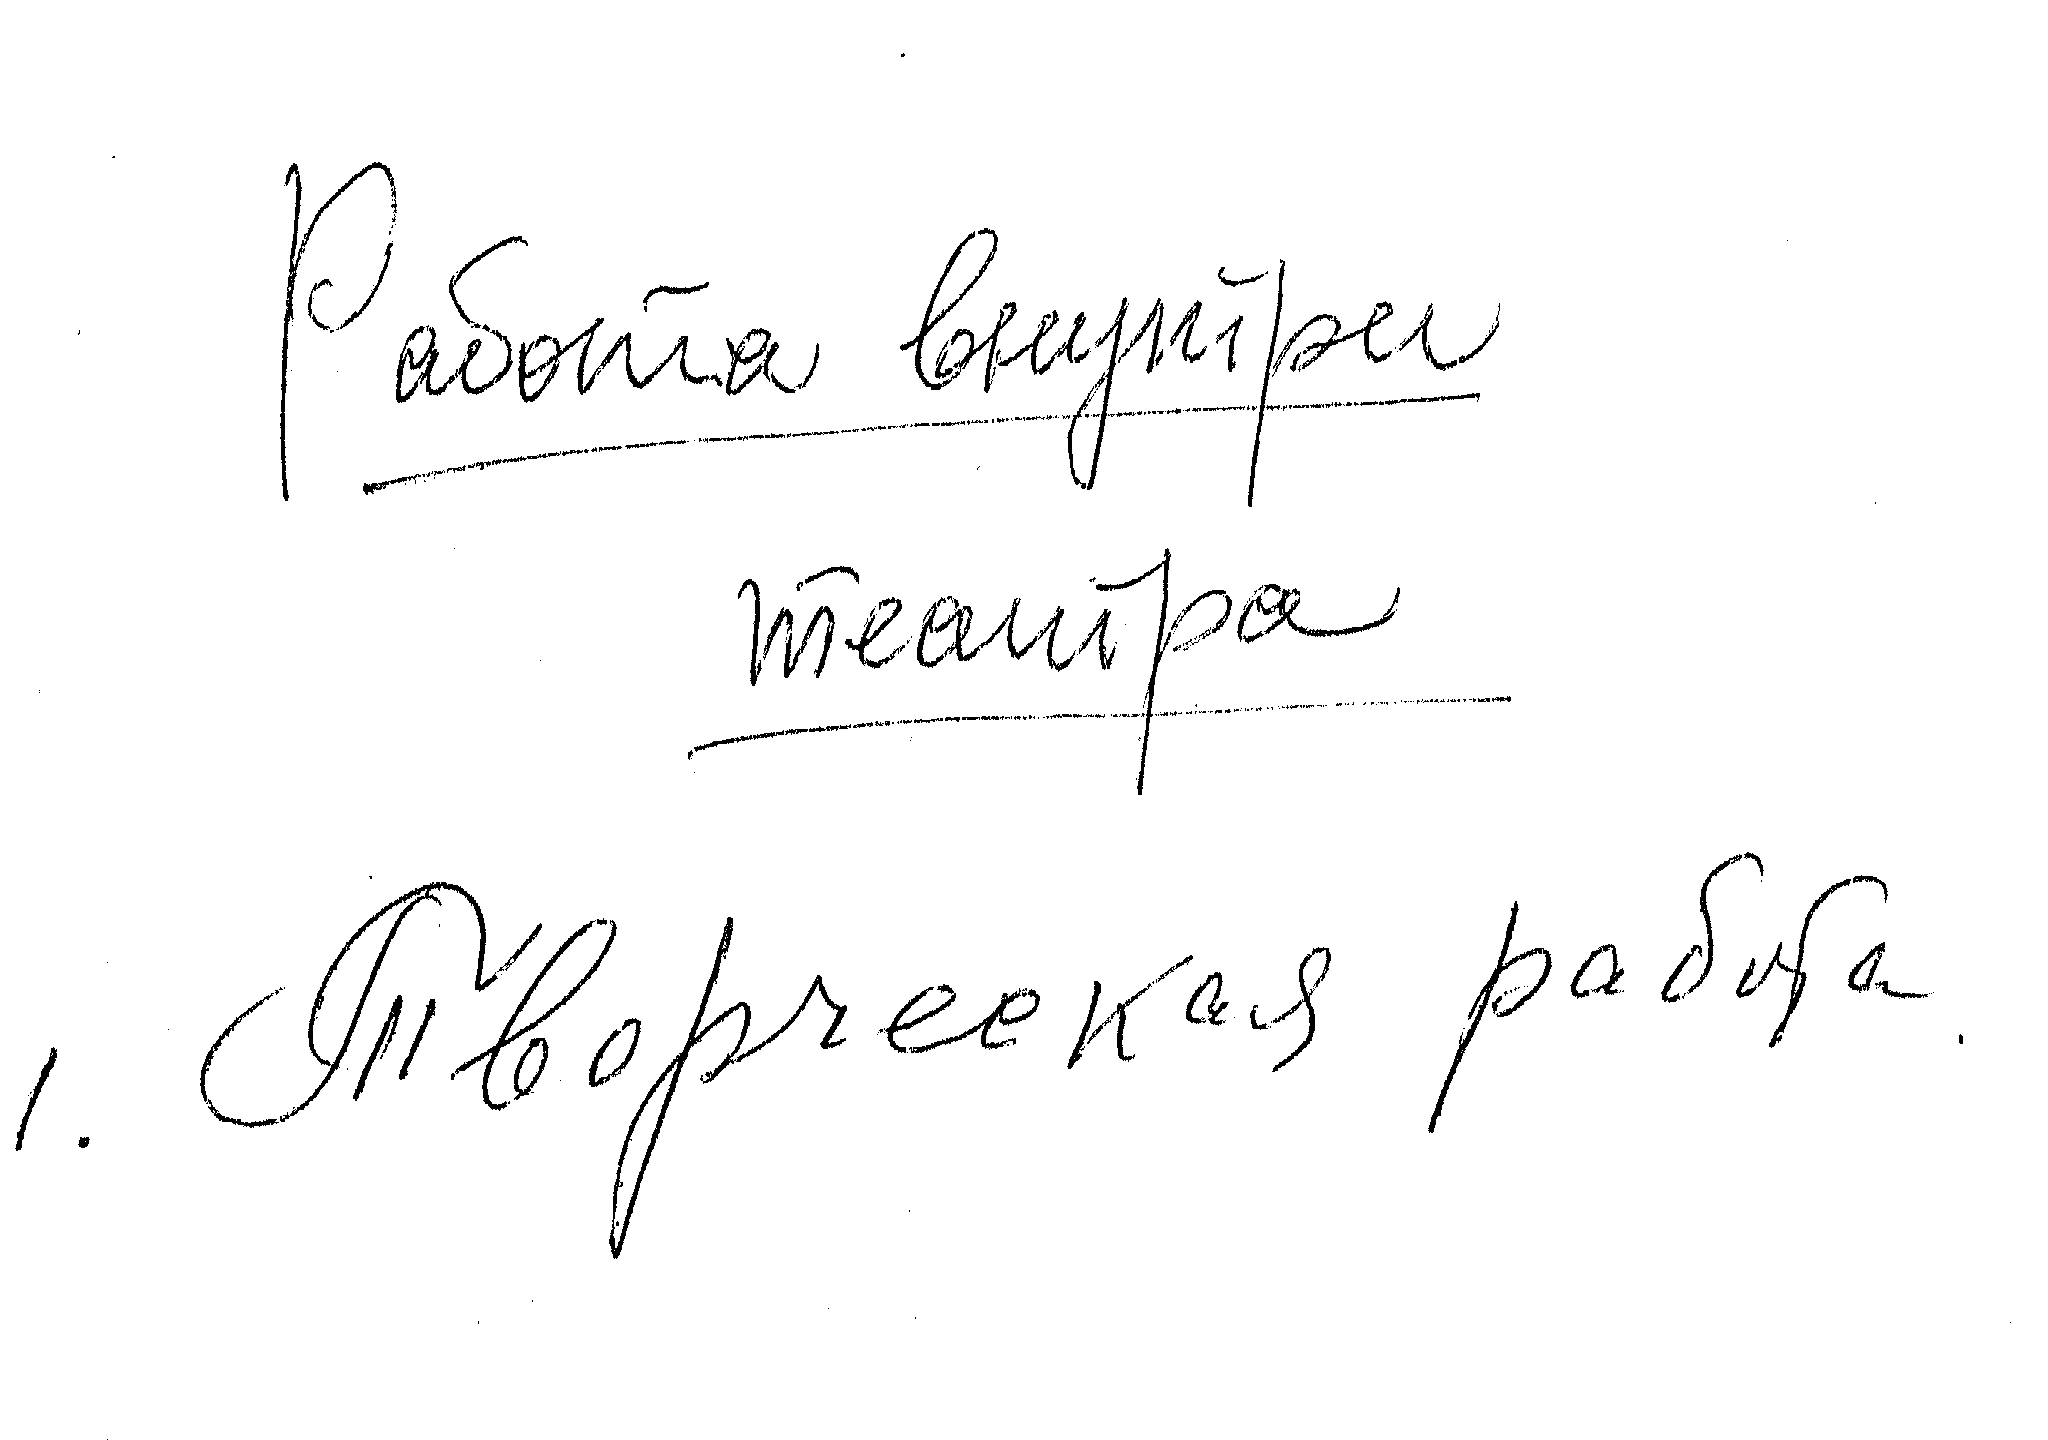 Работа внутри
театра
1. Творческая работа.